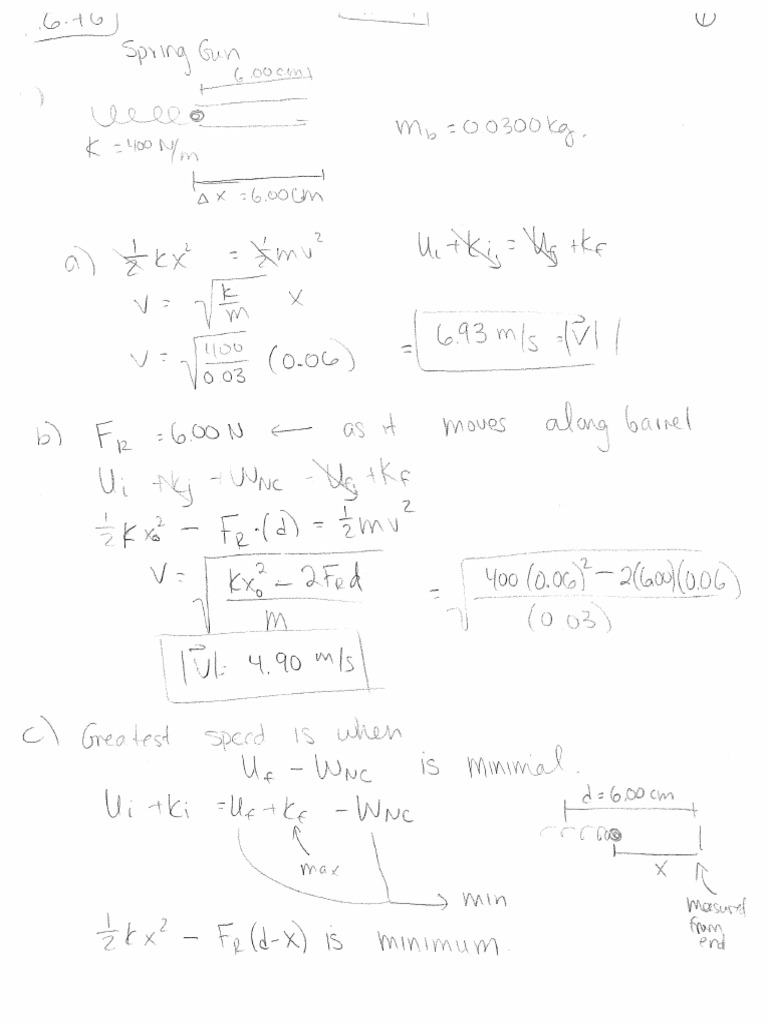 6.+6
Spring Gun
6.00cm
K = 400 N/m
m_b = 0.0300kg.
Δx = 6.00cm
a) 1/2 kx² = 1/2 mv²
U_i + K_i = U_f + K_f
V = √(k/m) x
V = √(400/0.03) (0.06) = 6.93 m/s = |V⃗|
b) F_R = 6.00 N ← as it moves along barrel
U_i + K_i + W_NC = U_f + K_f
1/2 kx₀² - F_R·(d) = 1/2 mv²
V = √((kx₀² - 2F_R d)/m) = √((400(0.06)² - 2(6.00)(0.06))/(0.03))
|V⃗| = 4.90 m/s
c) Greatest speed is when
U_f - W_NC is minimal.
U_i + K_i = U_f + K_f - W_NC
max
min
d = 6.00 cm
x
measured
from
end
1/2 kx² - F_R(d-x) is minimum.